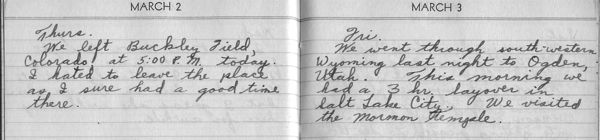 MARCH 2
Thurs.
We left Buckley Field,
Colorado at 5:00 P.M. today.
I hated to leave the place
as I sure had a good time
there.
MARCH 3
Fri.
We went through south-western
Wyoming last night to Ogden,
Utah. This morning we
had a 3 hr. layover in
Salt Lake City. We visited
the Mormon Temple.